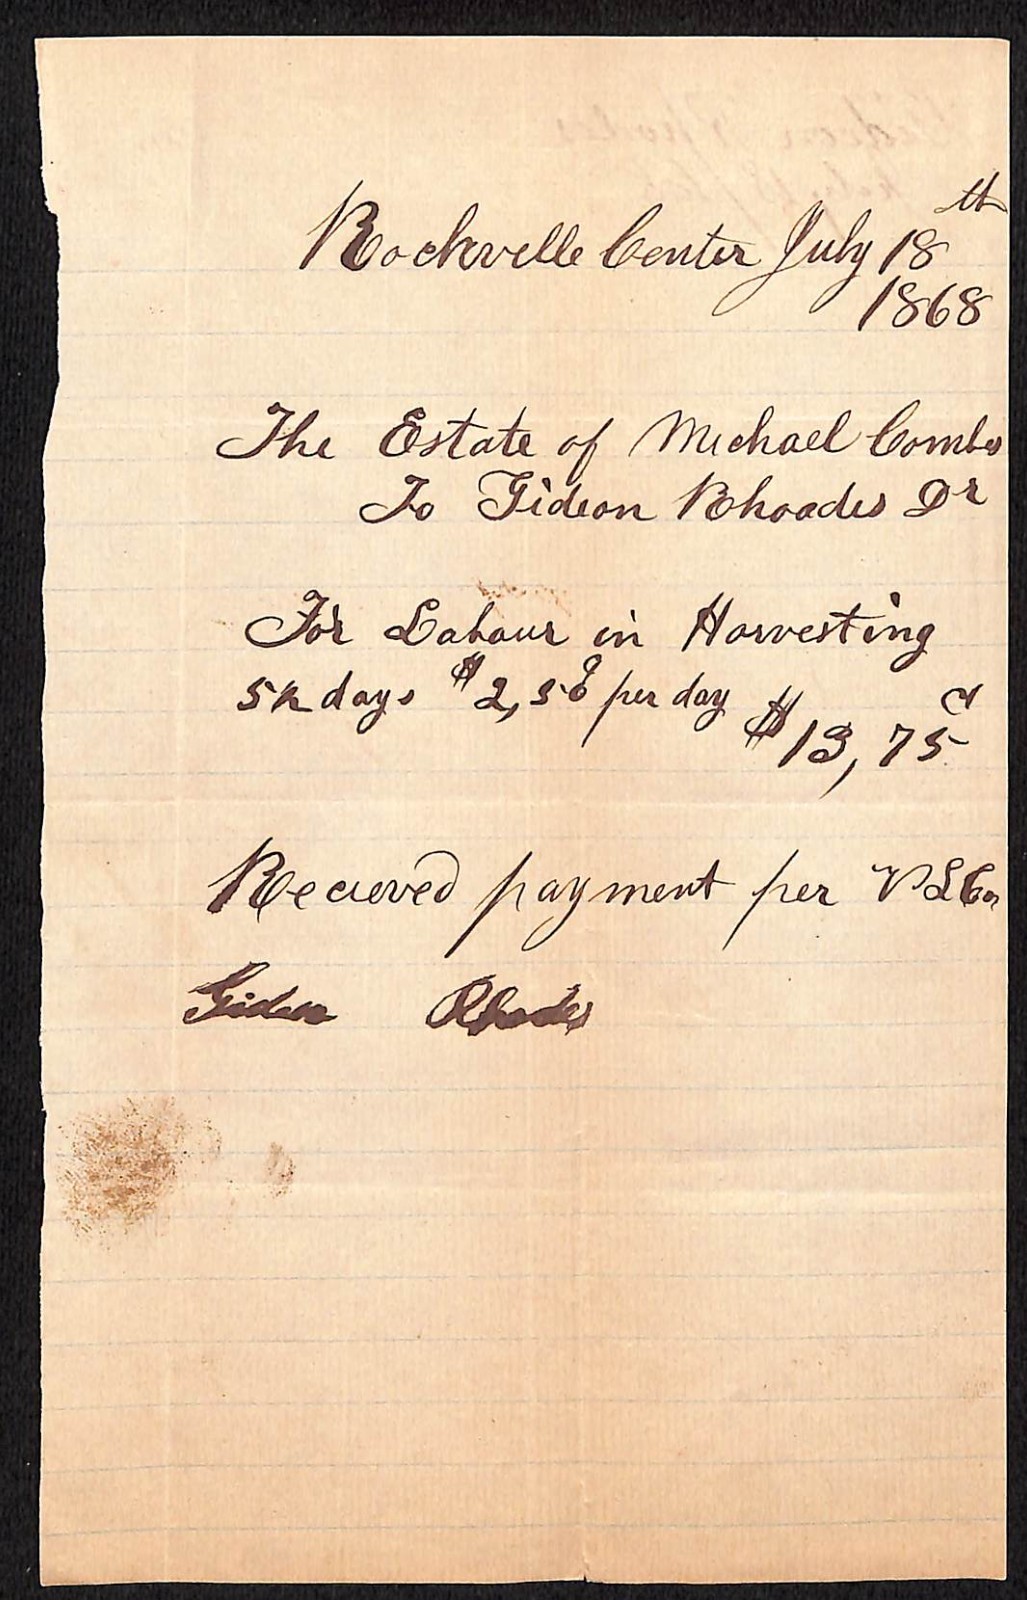 Rockville Center July 18th
1868
The Estate of Michael Combs
To Gideon Rhoades Dr
For Labour in Harvesting
5½ days $2,50 per day $13,75 c
Recieved payment per
Gideon Rhodes